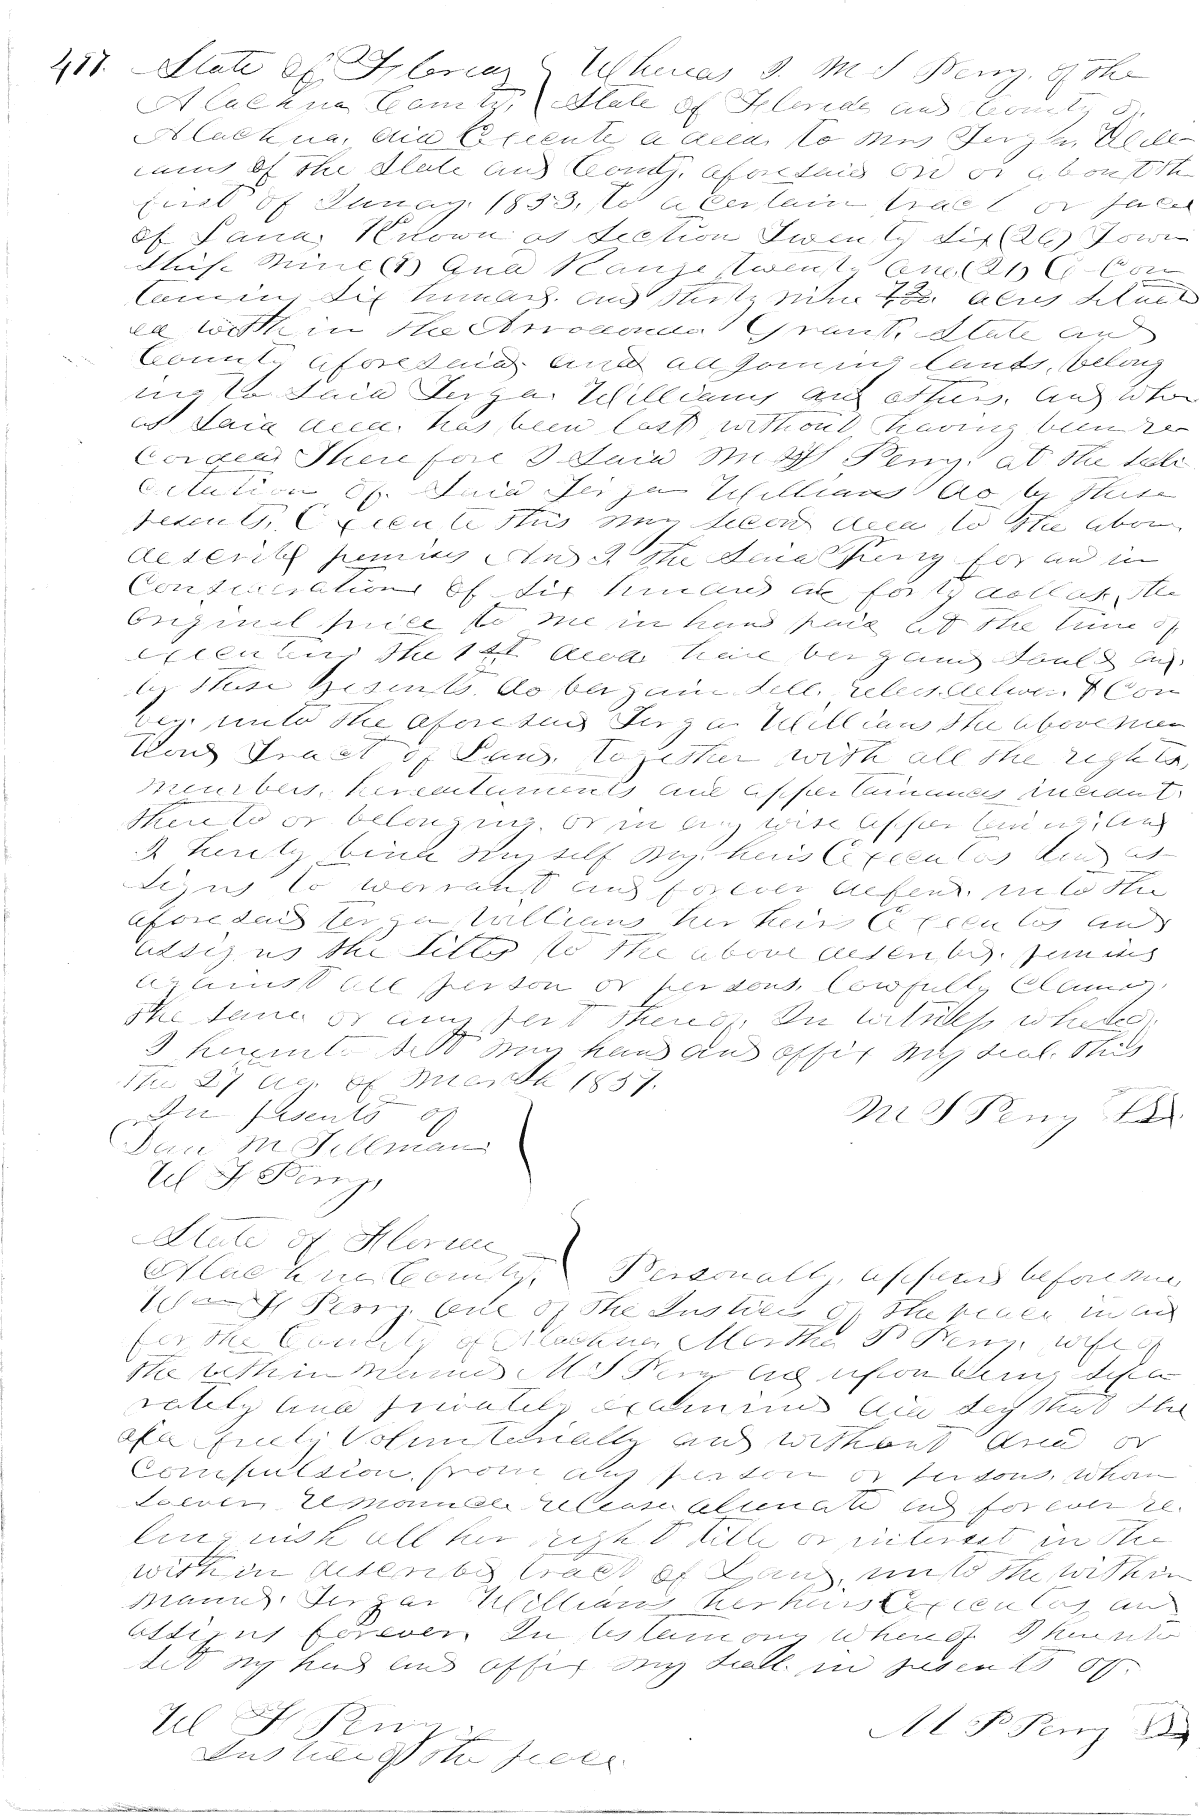 State of Florida } Whereas I. M. S Perry. of the
Alachua County. } State of Florida and County of
Alachua, did Execute a deed to Mrs Terza Will-
iams of the State and County. aforesaid on or about the
first of 1853, to a certain tract or
of Land, Known as Section Twenty Six (26) Town
Ship Nine (9) And Range twenty one (21) Con
taining Six hundred. and thirty nine acres Situat
ed within the Arredondo Grant. State and
County aforesaid. and adjoining lands, belong
ing to Said Terza. Williams and others. and wher
as Said deed. has been lost without having been re
corded Therefore I Said M S Perry. at the Soli
citation of. Said Terza Williams do by these
resents. Execute this my second deed to the above
describd premises And I the Said Perry for and in
Consideration of Six hundred and forty dollars, the
original price to me in hand paid at the time of
executing the 1st deed have bergand Sould and
by these presents. do bergain Sell. reles. deliver & Con
vey. unto the aforesaid Terza Williams the above men
tiond Tract of Land. together with all the rights,
members. and appertainances
thereto or belonging. or in any wise and
I hereby bind myself my. heirs Executos and as
signs to worrant and forever defend. unto the
aforesaid Terza Williams her heirs Executos and
assigns the Title to the above describd. premises
against all person or persons. lowfully Claimg.
the same or any pert thereof. In witness whereof.
I hereunto sett my hand and affix my seal. this
the 27 day. of March 1857.
In presents of M S Perry
M Tillman
W F Perry,
State of Florida
Alachua County. } Personally, appeard before me
Wm F Perry. one of the Justices of the peace in and
for the County of Alachua Martha P Perry. wife of
the within named M. S Perry and upon being Sepa
rately and privately examined did say that she
freely Voluntarially and without dred or
Compulsion. from any person or persons. whom
soever. release alienate and forever re.
linquish all her right title or interest in the
within describd tract of Land, unto the within
named. Terza Williams her heirs Executos and
assigns forever. In testamony whereof I hereunto
sett my hand and affix my seal. in presents of.
W F Perry. M P Perry
Justice of the peace.